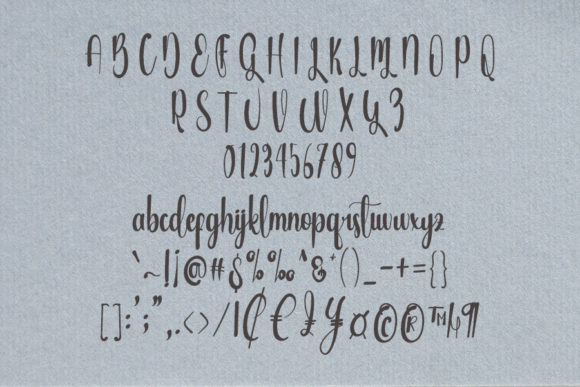 ABCDEFGHIJKLMNOPQ
RSTUVWXYZ
0123456789
abcdefghijklmnopqrstuvwxyz
`~!¡@#$%‰^&*()_-+={}
[]:';",.<>/|¢€£¥¤©®™µ¶